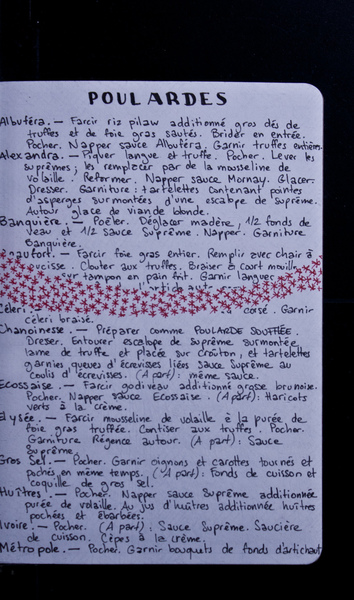 POULARDES
Albuféra. — Farcir riz pilaw additionné gros dés de
truffes et de foie gras sautés. Brider en entrée.
Pocher. Napper sauce Albuféra. Garnir truffes entières.
Alexandra. — Piquer langue et truffe. Pocher. Lever les
suprêmes; les remplacer par de la mousseline de
Volaille. Reformer. Napper sauce Mornay. Glacer.
Dresser. Garniture: tartelettes contenant pointes
d'asperges surmontées d'une escalope de suprême.
Autour glace de viande blonde.
Banquière. — Poêler. Déglacer madère, 1/2 fonds de
veau et 1/2 sauce Suprême. Napper. Garniture
Banquière.
— Farcir foie gras entier. Remplir avec chair à
Clouter aux truffes. Braiser à court mouille
sur tampon en pain frit. Garnir langues
Céleri corsé. Garnir
céleri braisé.
Chanoinesse. — Préparer comme POULARDE SOUFFLÉE.
Dresser. Entourer escalope de suprême surmontée
lame de truffe et placée sur croûton; et tartelettes
garnies queues d'écrevisses liées sauce Suprême au
coulis d'écrevisses. (A part): même sauce.
Ecossaise. — Farcir godiveau additionné grosse brunoise.
Pocher. Napper sauce Ecossaise. (A part): Haricots
verts à la crème.
Elysée. — Farcir mousseline de volaille à la purée de
foie gras truffée. Contiser aux truffes. Pocher.
Garniture Régence autour. (A part): Sauce
Suprême.
Gros Sel. — Pocher. Garnir oignons et carottes tournés et
pochés en même temps. (A part): fonds de cuisson et
coquille de gros sel.
Huîtres. — Pocher. Napper sauce Suprême additionnée
purée de volaille. Au jus d'huîtres additionnée huîtres
pochées et ébarbées.
Ivoire. — Pocher. (A part): Sauce Suprême. Saucière
de cuisson. Cèpes à la crème.
Métropole. — Pocher. Garnir bouquets de fonds d'artichaut